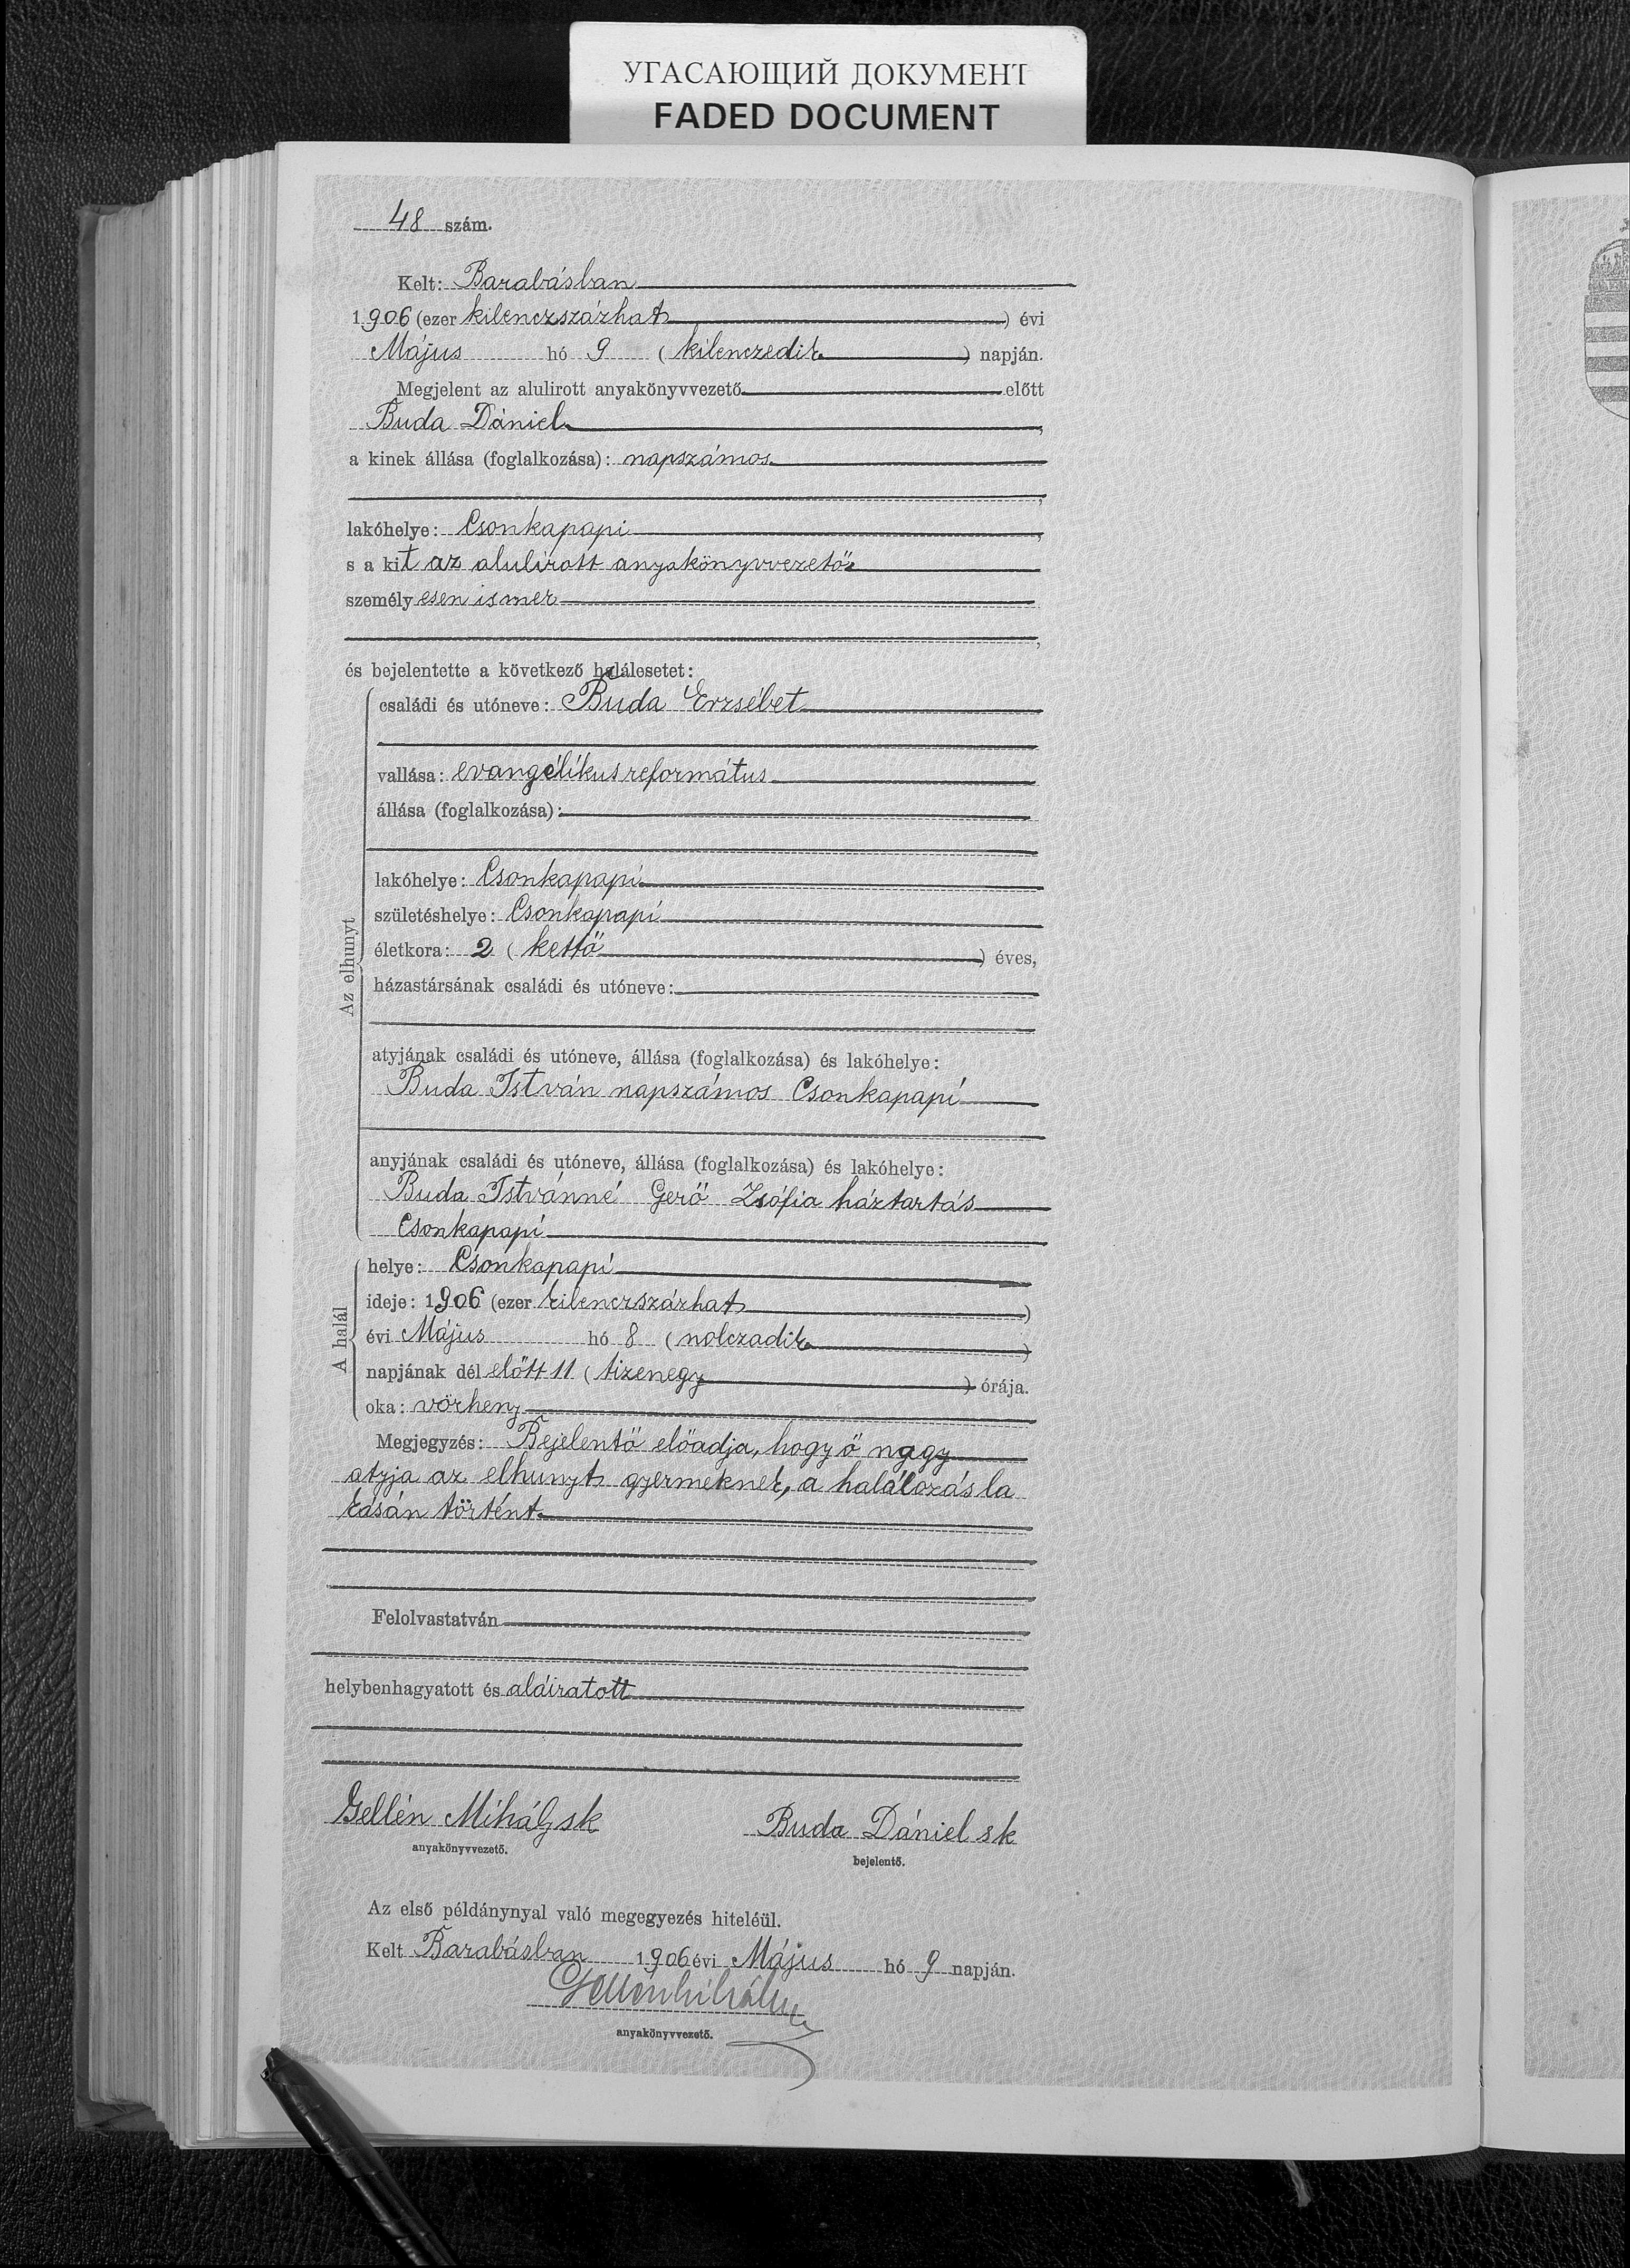 УГАСАЮЩИЙ ДОКУМЕНТ
FADED DOCUMENT
48 szám.
Kelt: Barabásban
1906 (ezer kilenczszázhat) évi
Május hó 9 (kilenczedik) napján.
Megjelent az alulirott anyakönyvvezető előtt
Buda Dániel,
a kinek állása (foglalkozása): napszámos
,
lakóhelye: Csonkapapi,
s a kit az alulírott anyakönyvvezető
személyesen ismer
,
és bejelentette a következő halálesetet:
Az elhunyt
családi és utóneve: Buda Erzsébet
vallása: evangélikus református
állása (foglalkozása):
lakóhelye: Csonkapapi
születéshelye: Csonkapapi
életkora: 2 (kettő) éves,
házastársának családi és utóneve:
atyjának családi és utóneve, állása (foglalkozása) és lakóhelye:
Buda István napszámos Csonkapapi
anyjának családi és utóneve, állása (foglalkozása) és lakóhelye:
Buda Istvánné Gerő Zsófia háztartás
Csonkapapi
A halál
helye: Csonkapapi
ideje: 1906 (ezer kilenczszázhat)
évi Május hó 8 (nolczadik)
napjának dél előtt 11 (tizenegy) órája.
oka: vörheny
Megjegyzés: Bejelentő előadja, hogy ő nagy
atyja az elhunyt gyermeknek, a halálozás la
kásán történt.
Felolvastatván
helybenhagyatott és aláiratott
Gellén Mihály sk Buda Dániel sk
anyakönyvvezető. bejelentő.
Az első példánynyal való megegyezés hiteléül.
Kelt Barabásban 1906 évi Május hó 9 napján.
Gellén Mihály
anyakönyvvezető.